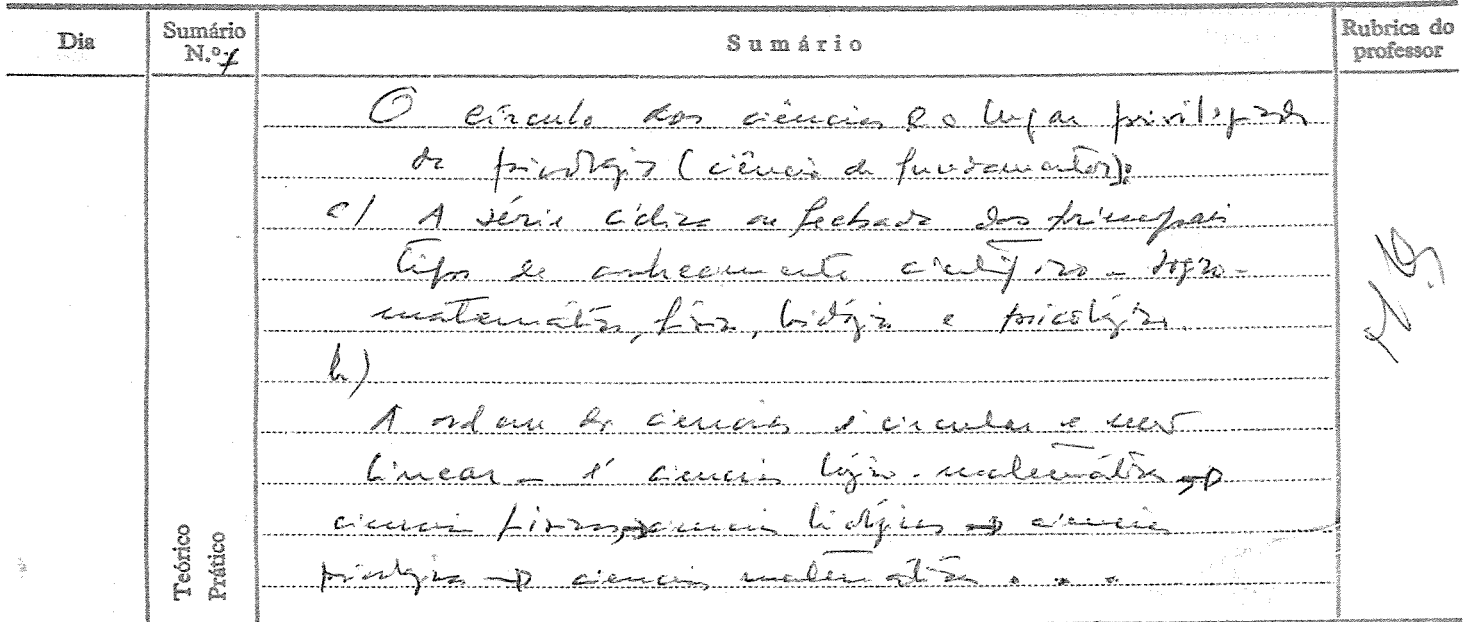 Dia
Sumário
N.º 7
Sumário
Rubrica do
professor
O círculo das ciências e o lugar privilegiado
da psicologia (ciência de fundamentos):
a) A série cíclica ou fechada dos principais
tipos de conhecimento científico - lógico-
matemático, física, biológica e psicológica.
b)
A ordem das ciencias é circular e não
linear - é ciencias lógico-matemáticas →
ciencias físicas, → ciencias biológicas → ciencias
psicológicas → ciencias matemáticas . . .
Teórico
Prático